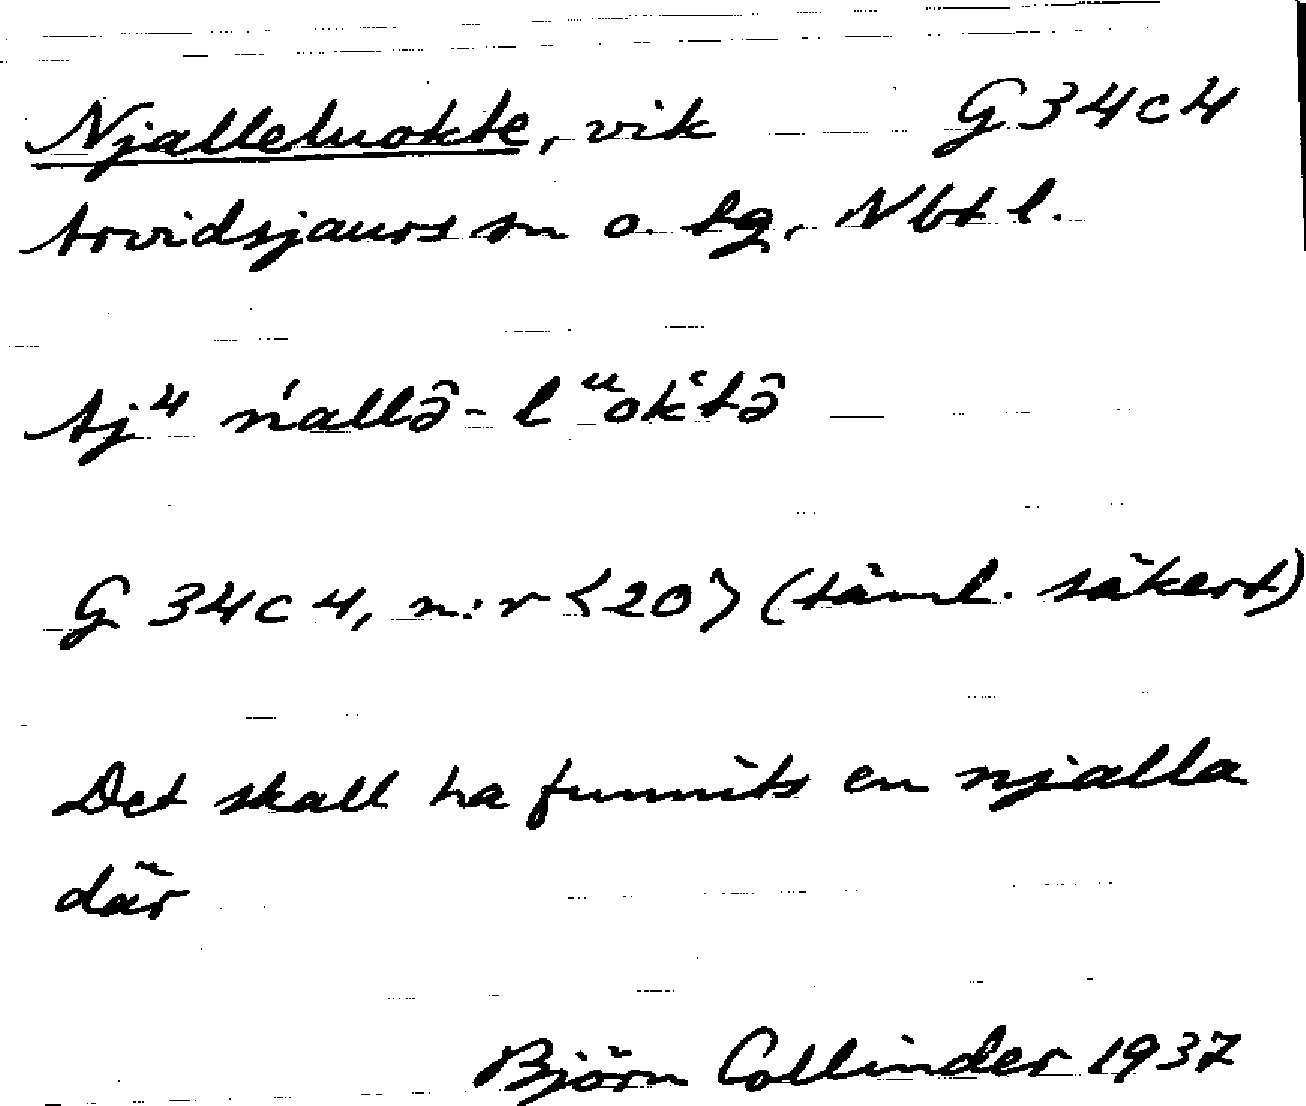 Njalleluokte, vik G34c4
Arvidsjaurs sn o. tg, Nbt l.
Aj⁴ ńallə̂-lᵘok‛tə̂ —
G 34c4, n:r <20> (täml. säkert)
Det skall ha funnits en njalla
där
Björn Collinder 1937